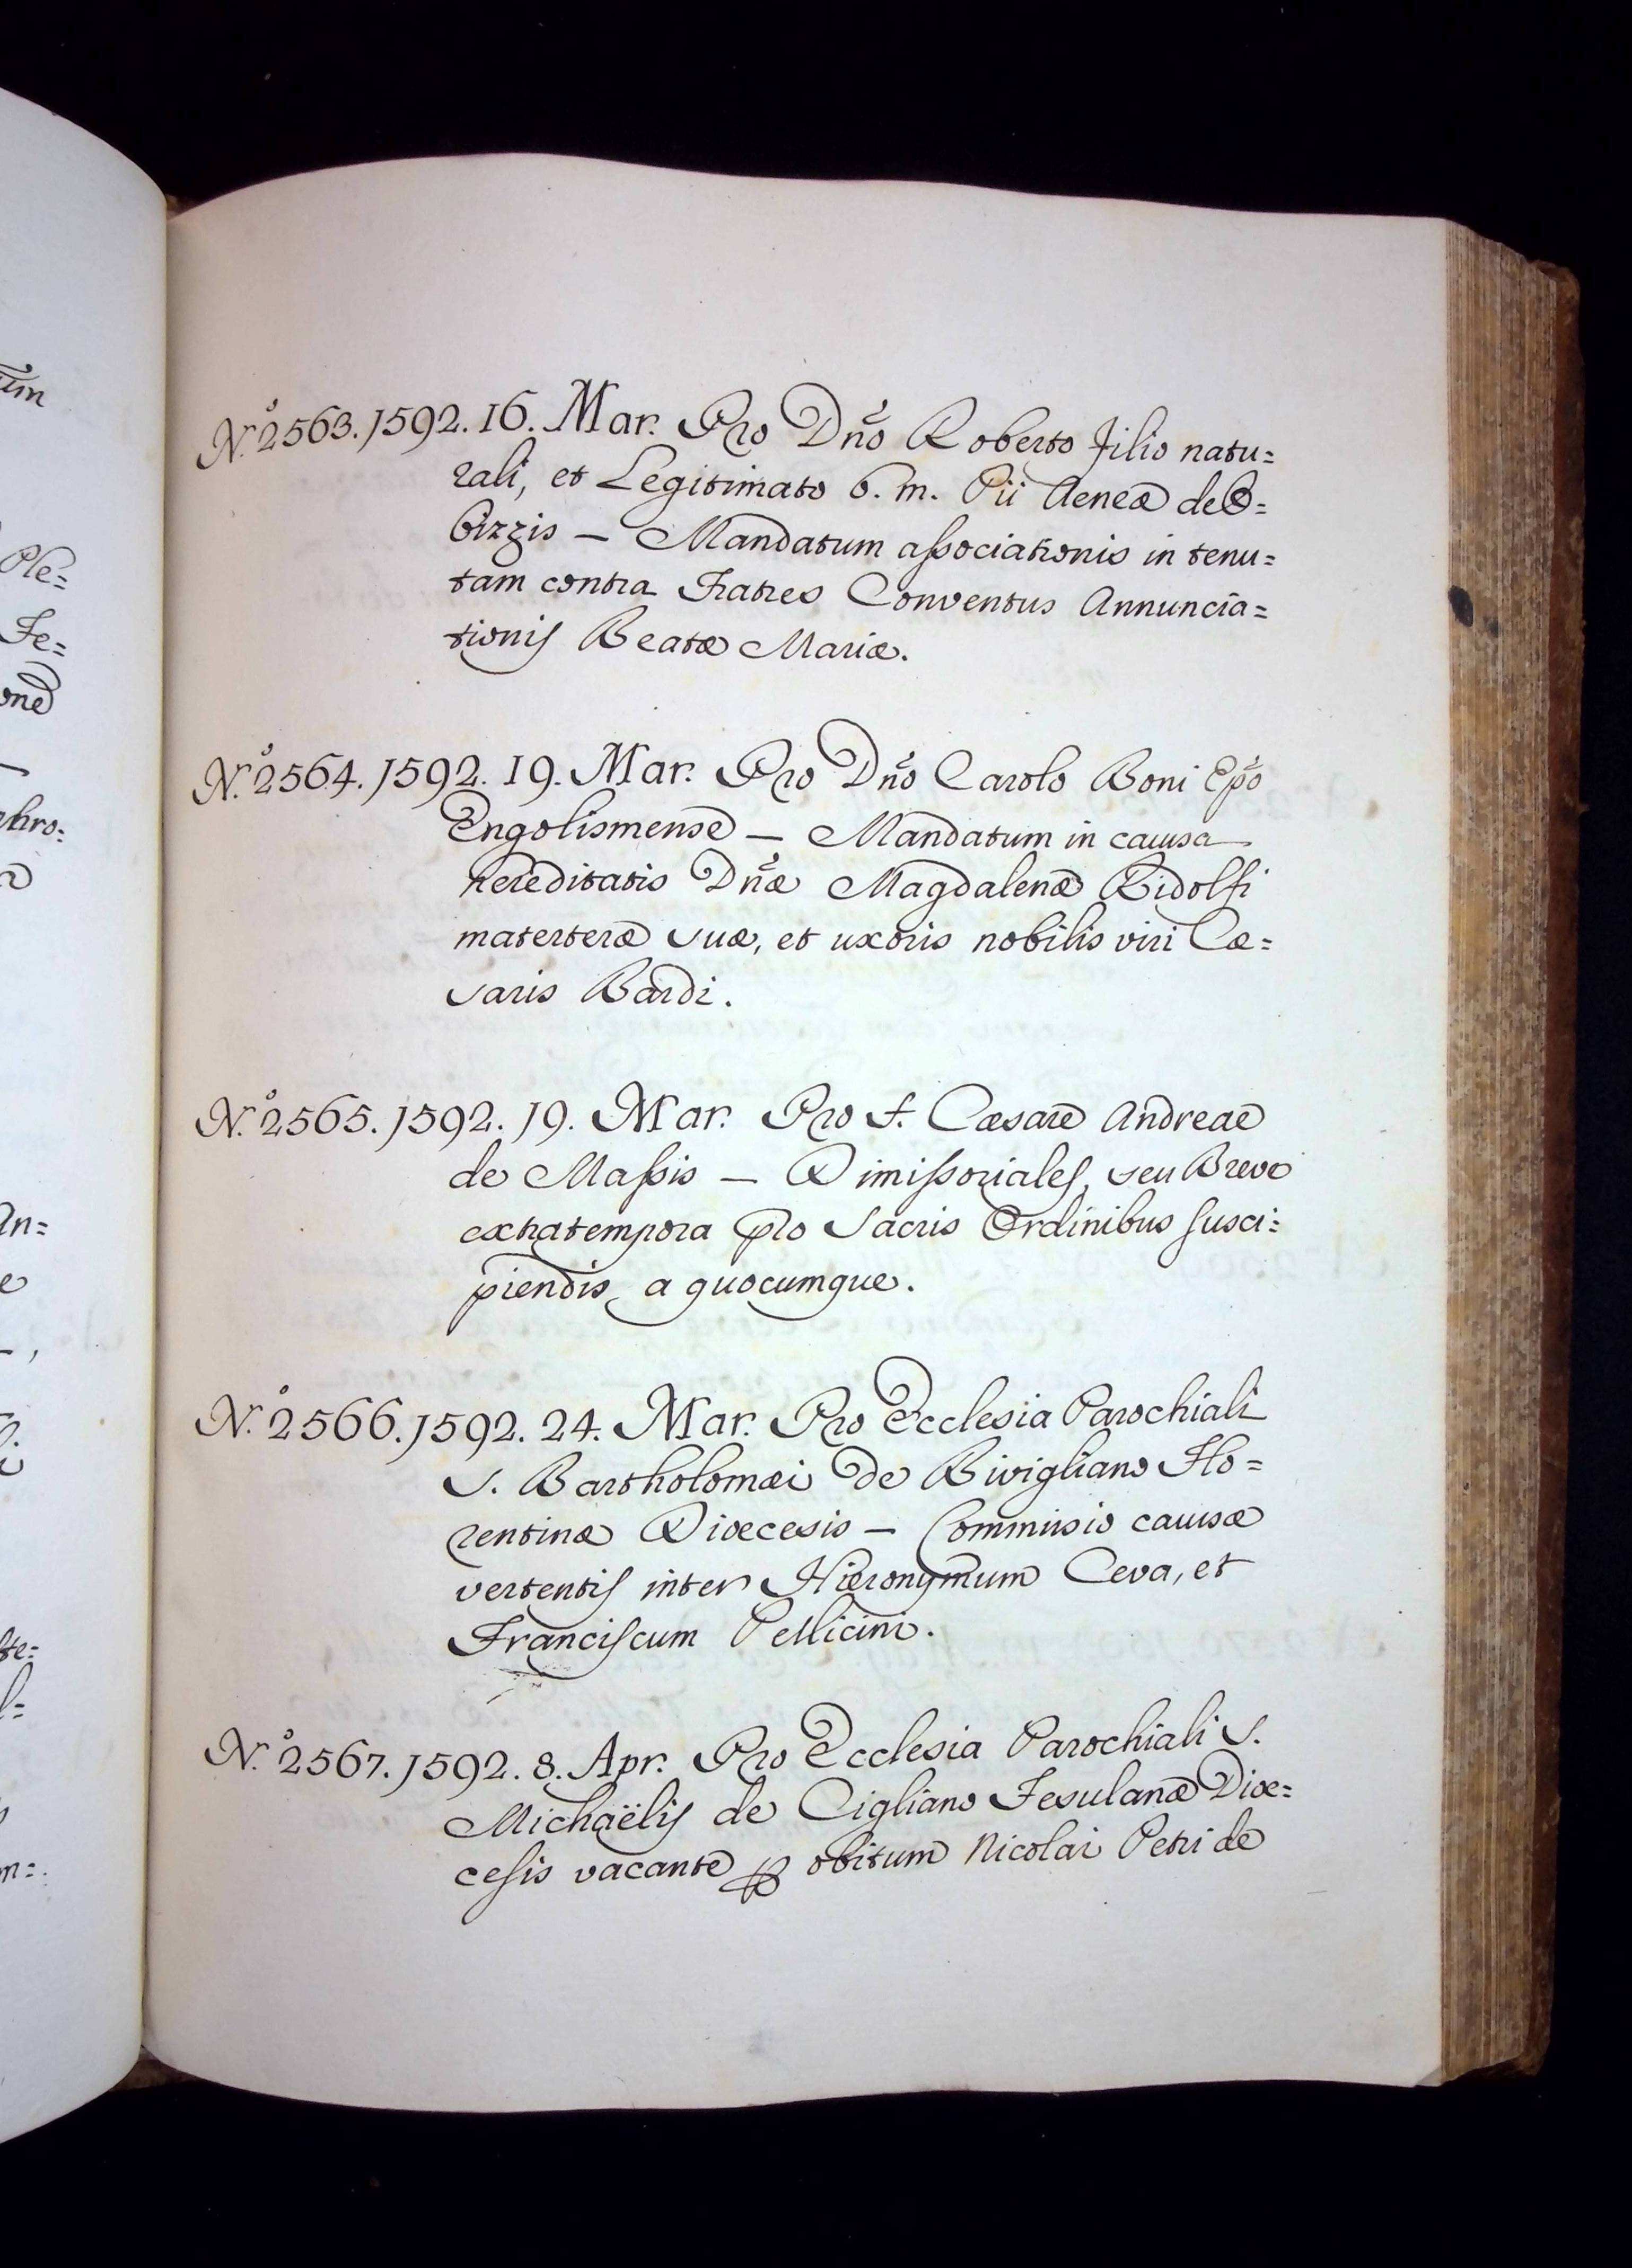 N.º 2563. 1592. 16. Mar. Pro Dño Roberto filio natu=
rali, et Legitimato b. m. Pii Aeneæ de O=
bizzis — Mandatum associationis in tenu=
tam contra Fratres Conventus Annuncia=
tionis Beatæ Mariæ.
N.º 2564. 1592. 19. Mar. Pro Dño Carolo Boni Epõ
Engolismense — Mandatum in caussa
hereditatis Dñæ Magdalenæ Ridolfi
materteræ suæ, et uxoris nobilis viri Cæ=
saris Bardi.
N.º 2565. 1592. 19. Mar. Pro F. Cæsare Andreae
de Massis — Dimissoriales, seu Breve
extratempora pro Sacris Ordinibus susci=
piendis a quocumque.
N.º 2566. 1592. 24. Mar. Pro Ecclesia Parochiali
S. Bartholomæi de Bivigliano Flo=
rentinæ Diœcesis — Commissio caussæ
vertentis inter Hieronymum Ceva, et
Franciscum Pellicini.
N.º 2567. 1592. 8. Apr. Pro Ecclesia Parochiali S.
Michaëlis de Cigliano Fesulanæ Diœ=
cesis vacante ꝑ obitum Nicolai Petri de
um
Ple=
Fe=
one
An=
e